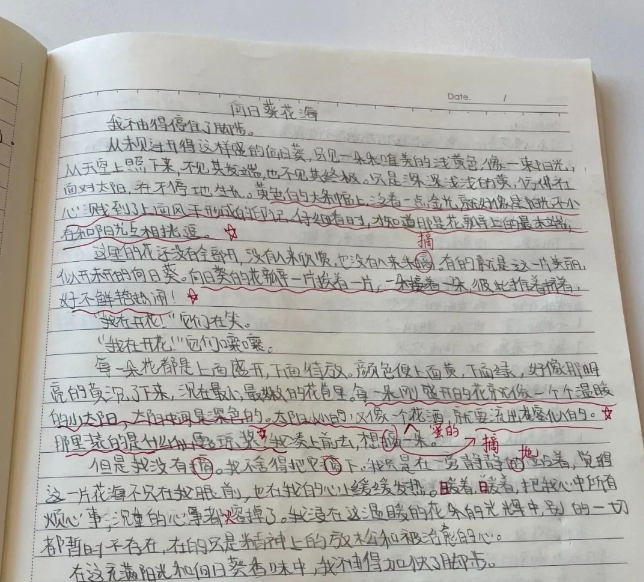 Date. /
向日葵花海
我不由得停住了脚步。
从未见过开得这样盛的向日葵,只见一朵朵唯美的浅黄色,像一束阳光,
从天空上照下来,不见其发端,也不见其终极。只是深深浅浅的黄,仿佛在
面对太阳,在不停地生长。黄色的大条幅上,泛着一点点光,就好像是阳光不小
心溅到了上面风干形成的印记,仔细看时,才知道那是花瓣上的最末端,
在和阳光互相挑逗。
摘
这里的花还没有全部开,没有人来欣赏,也没有人来。有的就是这一片美丽,
似开未开的向日葵。向日葵的花瓣一片挨着一片,一朵接着一朵,彼此推着挤着,
好不解热闹!
“我在开花!”它们在笑。
“我在开花!”它们嚷嚷。
每一朵花都是上面盛开,下面待放。颜色便上面黄,下面绿,好像那明
亮的黄沉了下来,沉在最小最嫩的花苞里。每一朵刚盛开的花就像一个个温暖
的小太阳,太阳中间是深色的。太阳似的!又像一个花洒,就要流出花蜜似的。
那里装的是什么仙露琼浆?我凑上前去,想一朵。
蜜的
摘
但是我没有。我不舍得把它下。我只是在一旁静静的站着,觉得
这一片花海不只在我眼前,也在我的心上缓缓发热。暖着暖着,把我心中所有
烦心事,沉重的心事都烧掉了。我浸在这温暖的花朵的光辉中,别的一切
都暂时不存在,有的只是精神上的放松和被治愈的心。
在这充满阳光和向日葵香味中,我不由得加快了脚步。